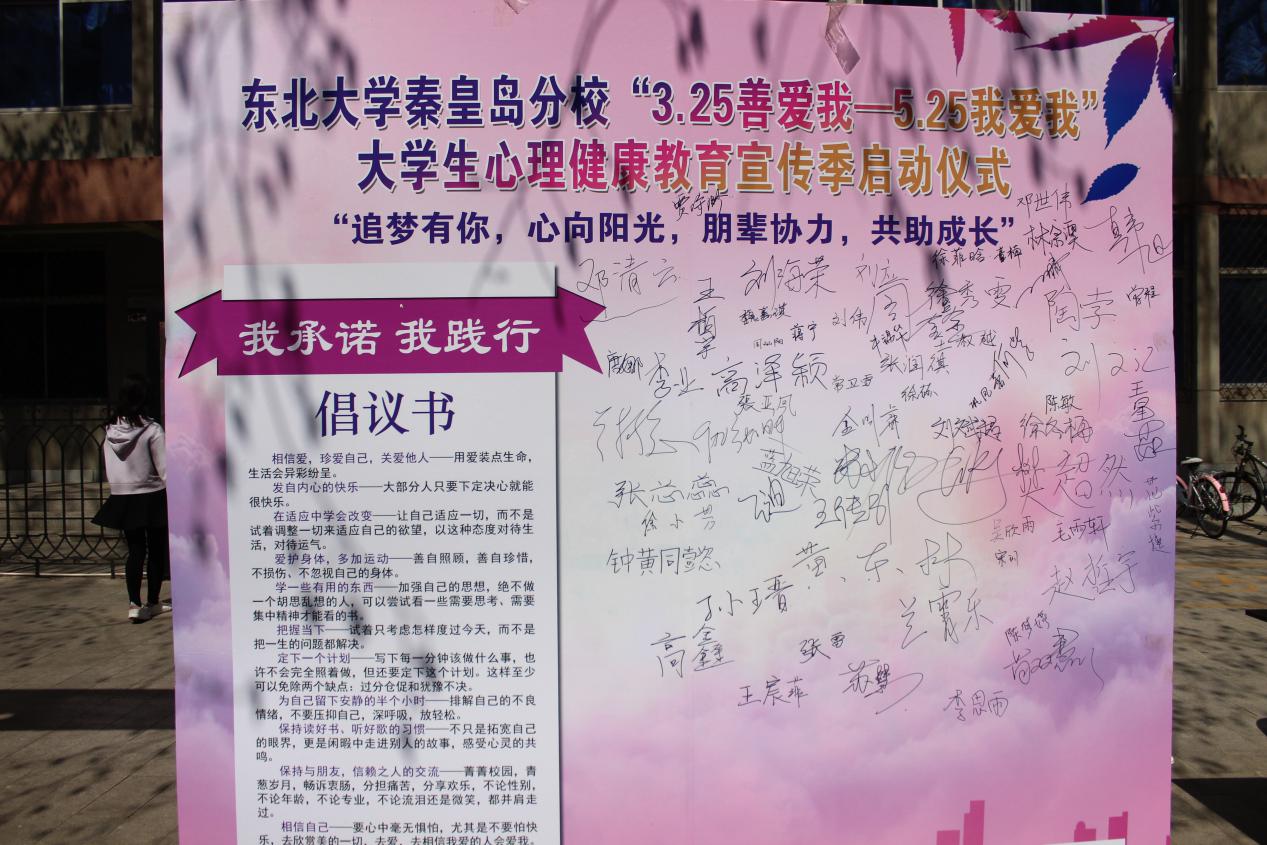 东北大学秦皇岛分校“3.25善爱我—5.25我爱我”
大学生心理健康教育宣传季启动仪式
“追梦有你，心向阳光，朋辈协力，共助成长”
我承诺 我践行
倡议书
相信爱，珍爱自己，关爱他人——用爱装点生命，
生活会异彩纷呈。
发自内心的快乐——大部分人只要下定决心就能
很快乐。
在适应中学会改变——让自己适应一切，而不是
试着调整一切来适应自己的欲望，以这种态度对待生
活，对待运气。
爱护身体，多加运动——善自照顾，善自珍惜，
不损伤、不忽视自己的身体。
学一些有用的东西——加强自己的思想，绝不做
一个胡思乱想的人，可以尝试看一些需要思考、需要
集中精神才能看的书。
把握当下——试着只考虑怎样度过今天，而不是
把一生的问题都解决。
定下一个计划——写下每一分钟该做什么事，也
许不会完全照着做，但还要定下这个计划。这样至少
可以免除两个缺点：过分仓促和犹豫不决。
为自己留下安静的半个小时——排解自己的不良
情绪，不要压抑自己，深呼吸，放轻松。
保持读好书、听好歌的习惯——不只是拓宽自己
的眼界，更是闲暇中走进别人的故事，感受心灵的共
鸣。
保持与朋友，信赖之人的交流——菁菁校园，青
葱岁月，畅诉衷肠，分担痛苦，分享欢乐，不论性别，
不论年龄，不论专业，不论流泪还是微笑，都并肩走
过。
相信自己——要心中毫无惧怕，尤其是不要怕快
乐，去欣赏美的一切，去爱，去相信我爱的人会爱我。
邓世伟
邓清云
刘海荣
徐秀雯
陶李
刘伟
李业
高泽颖
张润祺
张亚凤
陈敏
徐冬梅
张蕊蕊
王传明
樊超然
徐小芳
吴欣雨
毛雨轩
钟黄同懿
黄、东、林
赵哲宇
孙王晋
兰霄乐
高鑫
张雷
王宸菲
李思雨